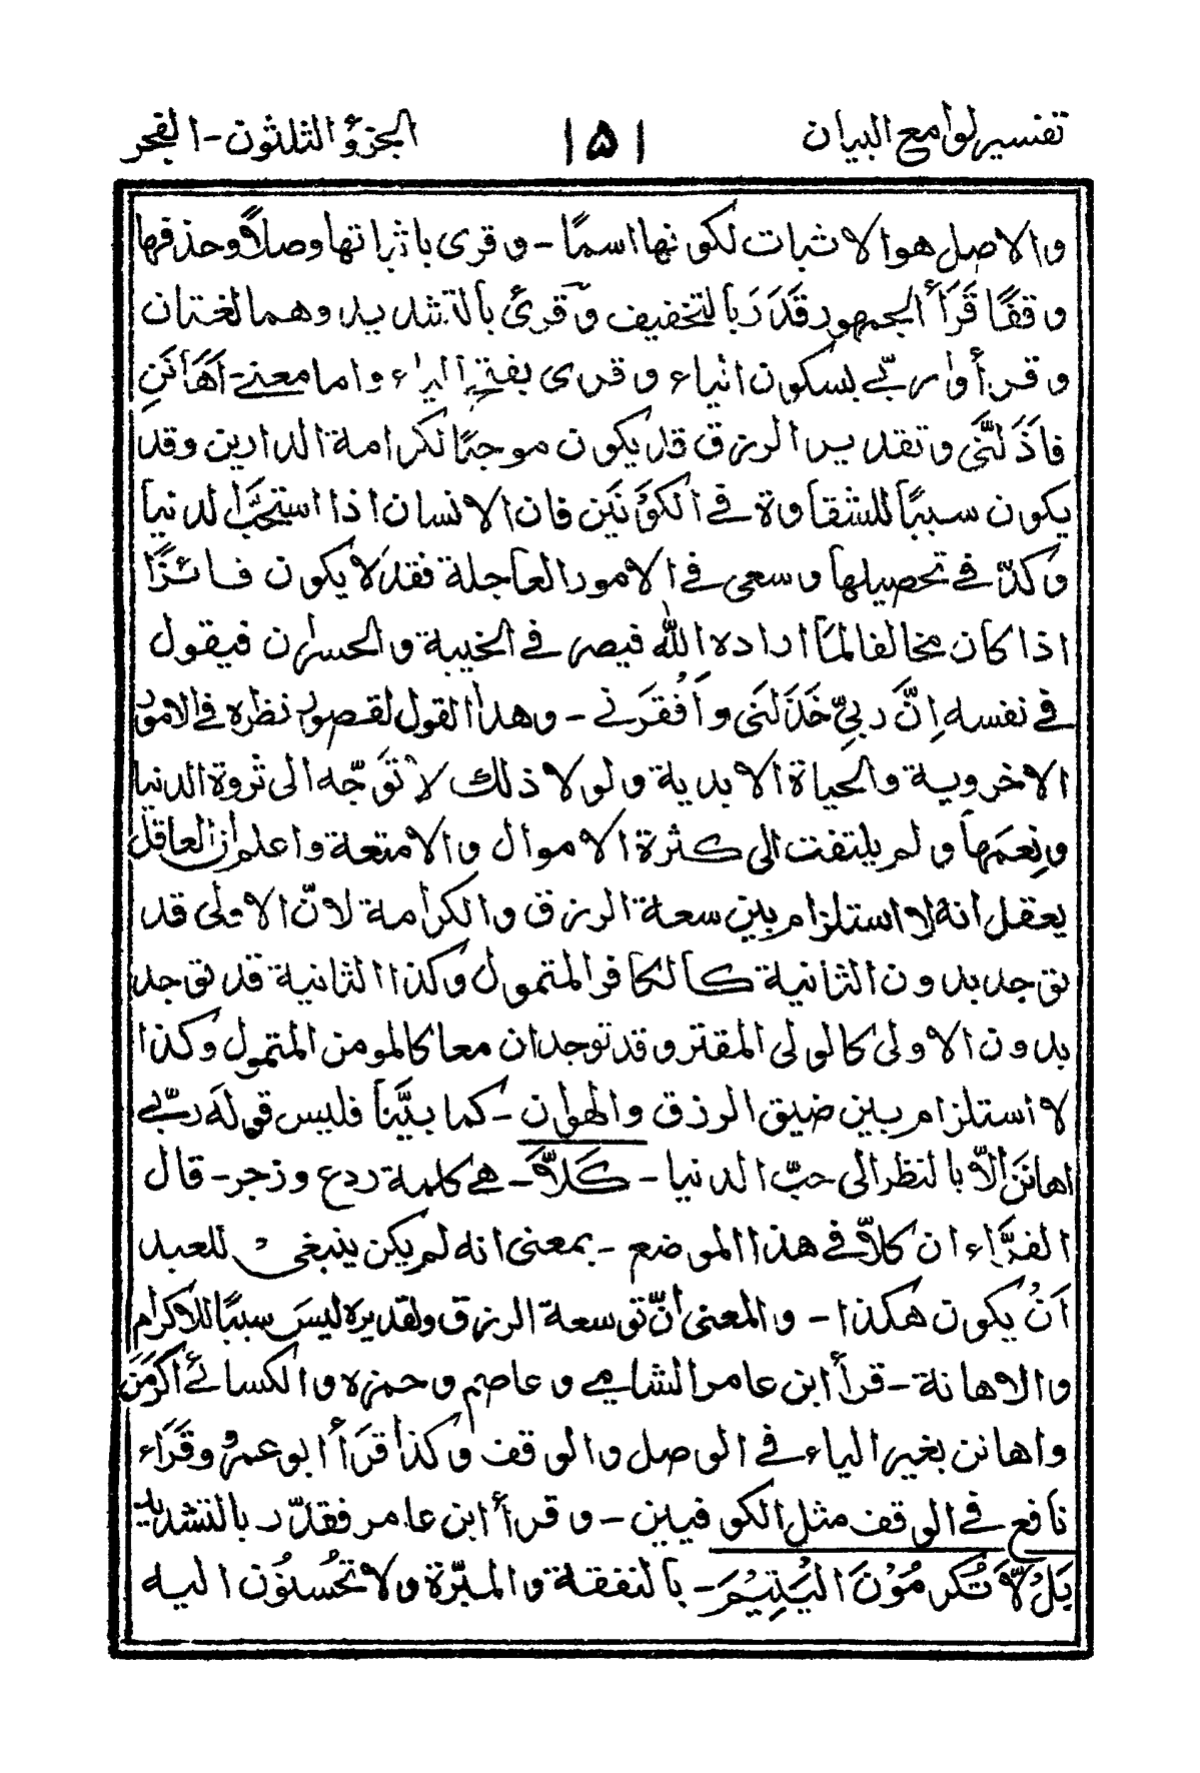 تفسير لوامع البيان ١٥١ الجزؤ الثلثون - الفجر
والاصل هو الاثبات لكونها اسمًا - وقرى باثباتها وصلاً وحذفها
وقفًا قَرَأ الجمهور قَدَرَ بالتخفيف وقرئ بالتشديد وهما لغتان
وقرأوا ربّي بسكون الياء وقرى بفتح الياء واما معنے اَهَانَنِ
فاَذَلَّنی وتقدير الرزق قد يكون موجبًا لكرامة الدارين وقد
يكون سببًا للشقاوة فے الكَوْنَيْن فان الانسان اذا استحبَّ الدنيا
وكدّ فے تحصيلها وسعى فے الامور العاجلة فقد لا يكون فائزًا
اذا كان مخالفا لما اراده الله فيصر فے الخيبة والحسران فيقول
فے نفسه اِنَّ ربیّ خَذَلَنی وأفْقَرَنے - وهذا القول لقصور نظره فے الامور
الاخروية والحياة الابدية ولولا ذلك لا تَوَجّه الى ثروة الدنيا
ونِعَمَها ولم يلتفت الى كثرة الاموال والامتعة واعلم ان العاقل
يعقل انه لا استلزام بين سعة الرزق والكرامة لانّ الاولى قد
توجد بدون الثانية كالكافر المتمول وكذا الثانية قد توجد
بدون الاولى كالولى المقتر وقد توجدان معا كالمومن المتمول وكذا
لا استلزام بين ضيق الرزق والهوان - كما بيَّنا فليس قوله ربّے
اهانَن اِلاّ بالنظر الى حبّ الدنيا - كَلاَّ - هے كلمة ردع وزجر - قال
الفرَّاء ان كلاّ فے هذا الموضع - بمعنى انه لم يكن ينبغى للعبد
اَنْ يكون هكذا - والمعنى أنّ توسعة الرزق وتقديره ليسَ سببًا للاكرام
والاهانة - قرأ ابن عامر الشامے وعاصم وحمزه والكسائے أكْرَمَنَ
واهانن بغير الياء فے الوصل والوقف وكذا قَرَأ ابو عمرو وقَرَاء
نافع فے الوقف مثل الكوفيين - وقرأ ابن عامر فقدّر بالتشديد
بَلْ لاَّ تُكْرِمُوْنَ الْيَتِيْمَ - بالنفقة والمبرّة ولا تُحْسنُوْن اليه